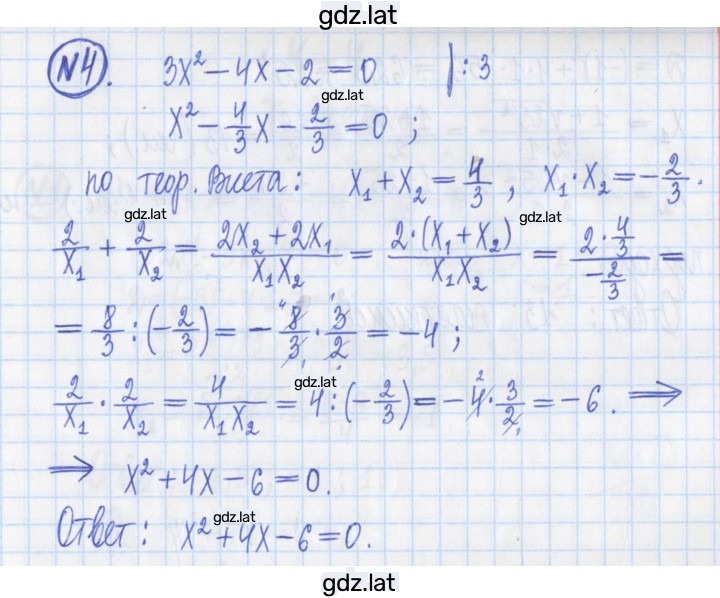 gdz.lat
№4. 3x² − 4x − 2 = 0 | : 3
gdz.lat
x² − 4/3 x − 2/3 = 0 ;
по теор. Виета: x₁ + x₂ = 4/3 , x₁ · x₂ = − 2/3 .
gdz.lat gdz.lat
2/x₁ + 2/x₂ = (2x₂ + 2x₁)/(x₁x₂) = (2 · (x₁ + x₂))/(x₁x₂) = (2 · 4/3)/(− 2/3) =
= 8/3 : (− 2/3) = − 8/3 · 3/2 = −4 ;
gdz.lat
2/x₁ · 2/x₂ = 4/(x₁x₂) = 4 : (− 2/3) = − 4 · 3/2 = −6 . ⟹
⟹ x² + 4x − 6 = 0.
gdz.lat
Ответ: x² + 4x − 6 = 0.
gdz.lat